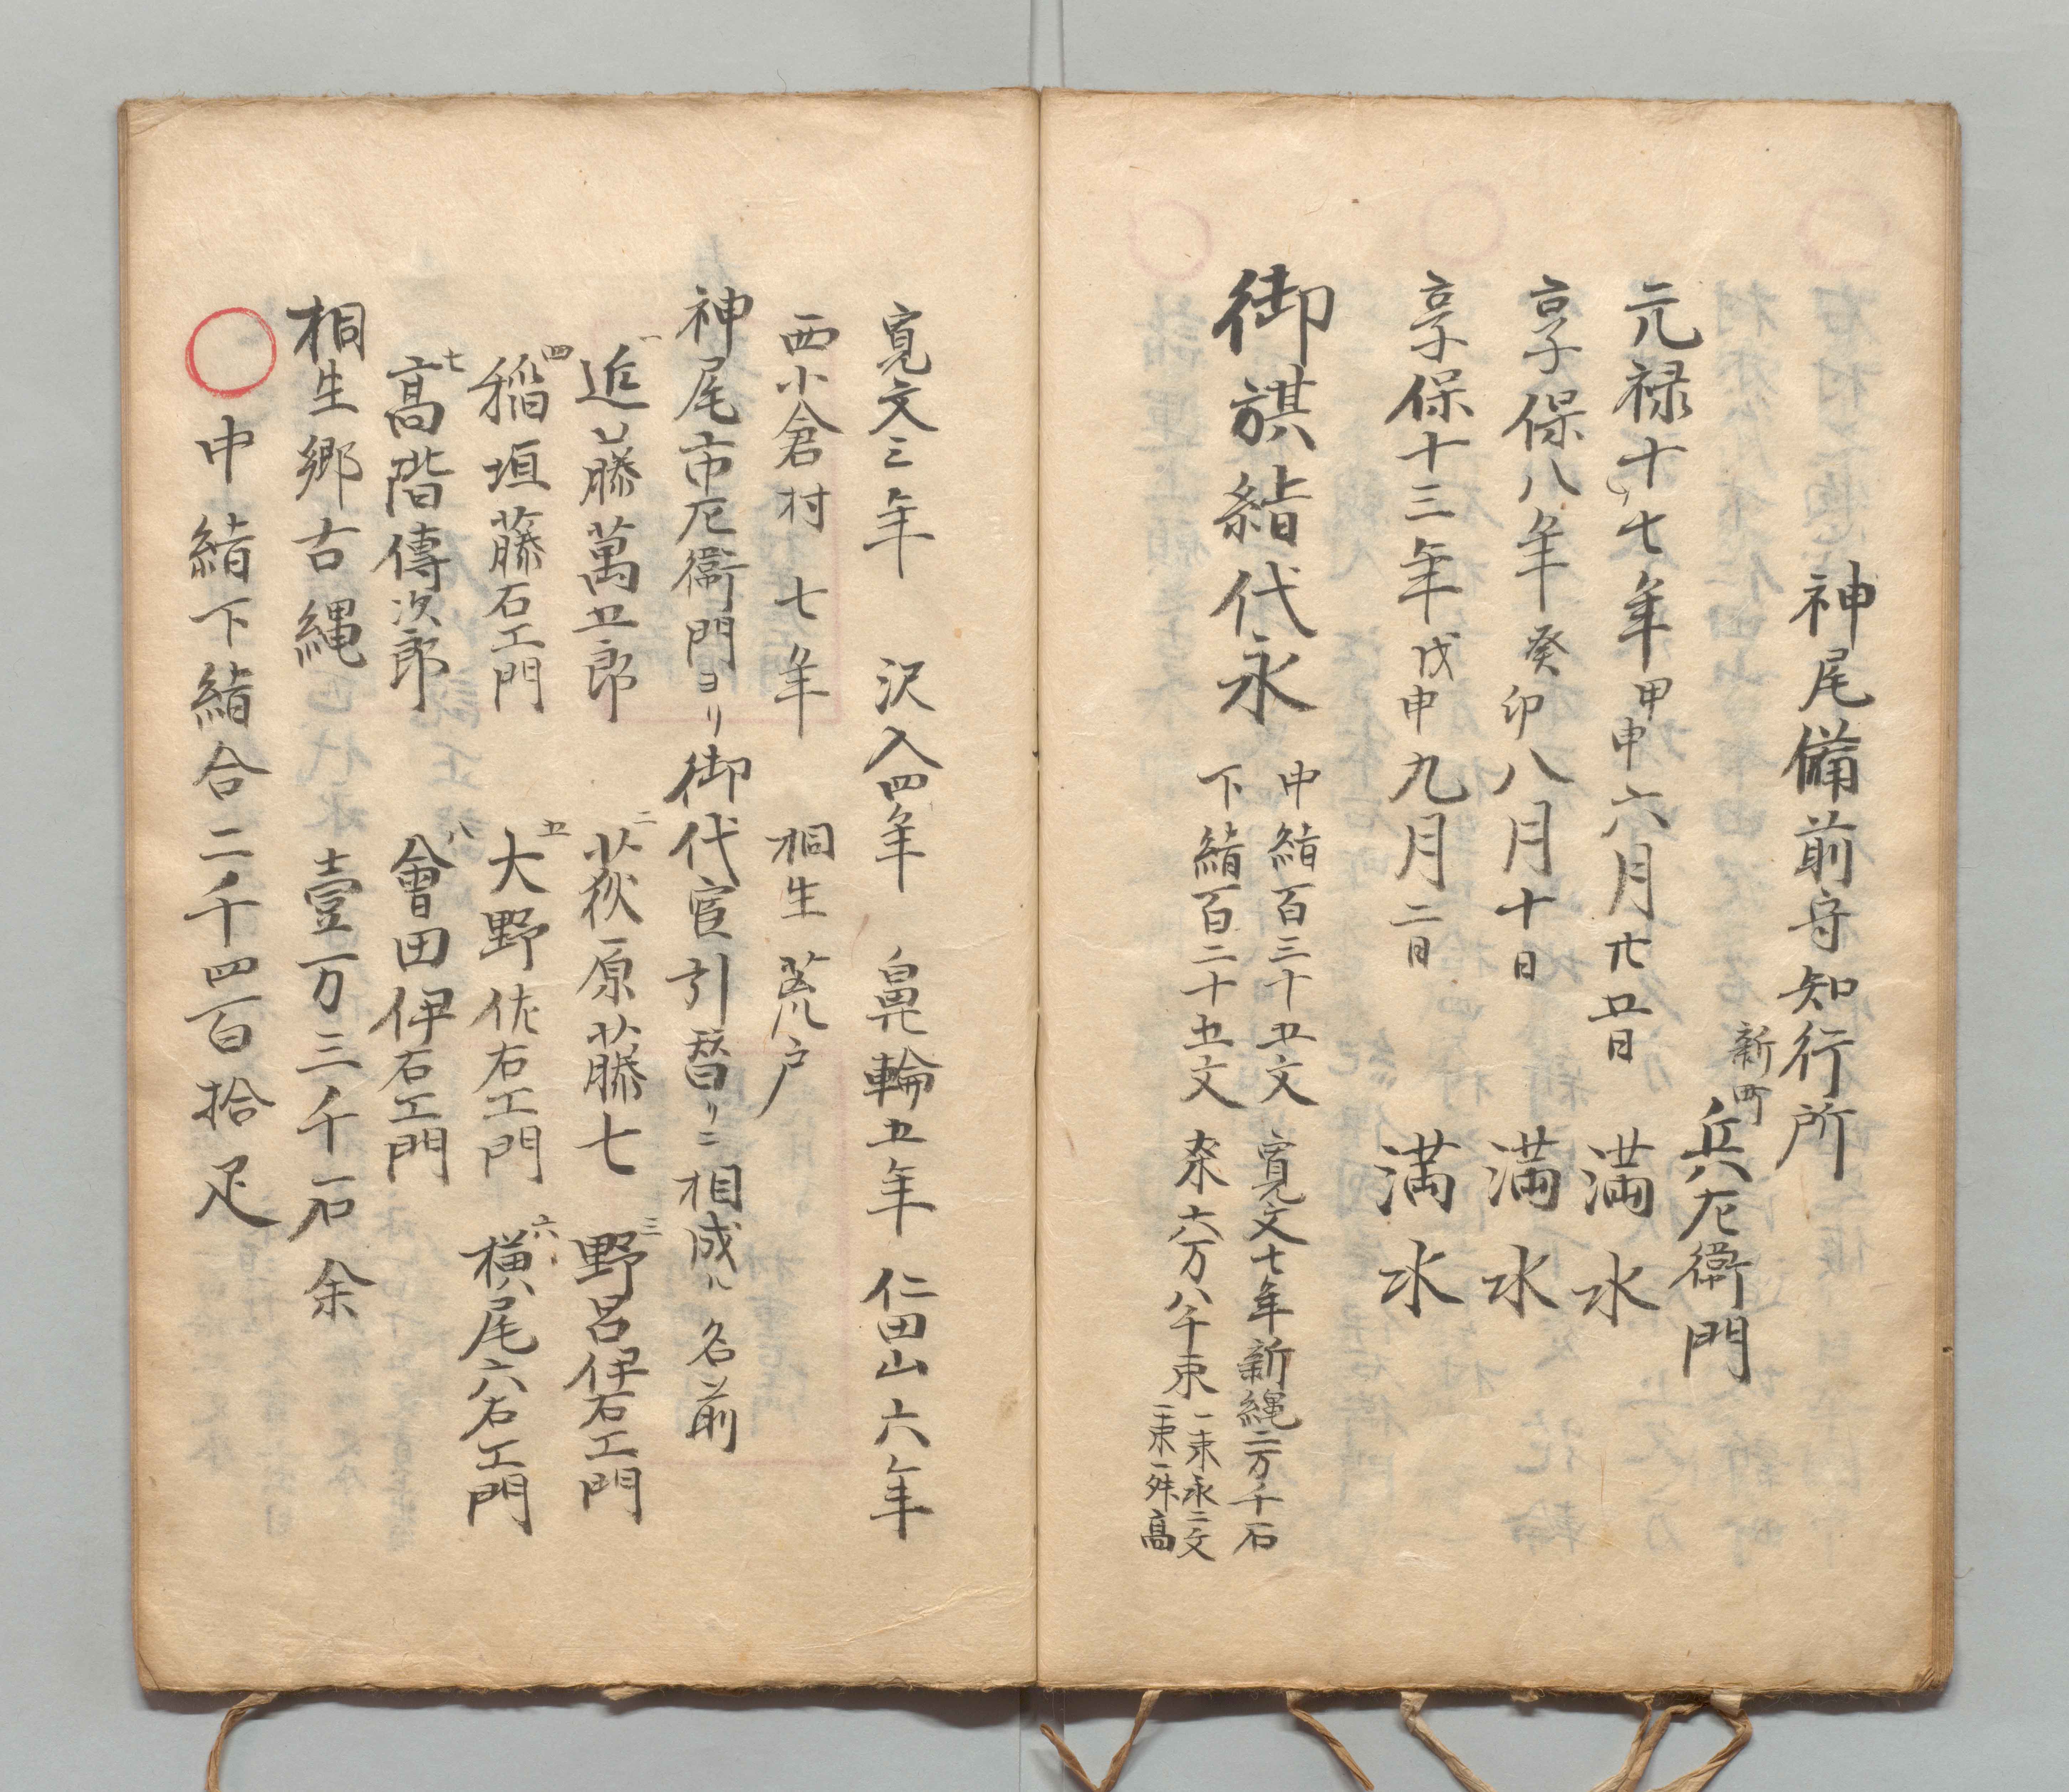 神尾備前守知行所
新町 兵左衛門
元禄十七年甲申六月廿五日 満水
享保八年癸卯八月十日 満水
享保十三年戊申九月二日 満水
御旗絹代永
中絹百三十五文
下絹百二十五文
寛文七年新縄二万千石
桒六万八千束
一束永二文
一束一舛高
寛文三年 沢入四年 鼻輪五年 仁田山六年
西小倉村 七年 桐生 荒戸
神尾市左衛門ヨリ御代官引替リニ相成ル名前
一 近藤萬五郎 二 荻原藤七 三 野呂伊右工門
四 稲垣藤右工門 五 大野佐右工門 六 横尾六右工門
七 高階傳次郎 八 會田伊右工門
桐生郷古縄 壹万三千石余
〇 中絹下絹合二千四百拾疋